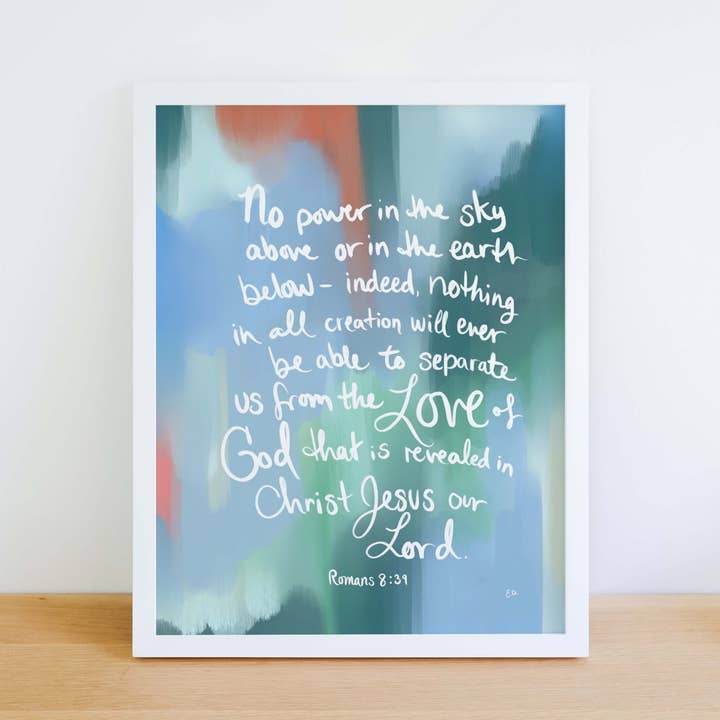 No power in the sky
above or in the earth
below - indeed, nothing
in all creation will ever
be able to separate
us from the Love of
God that is revealed in
Christ Jesus our
Lord.
Romans 8:39